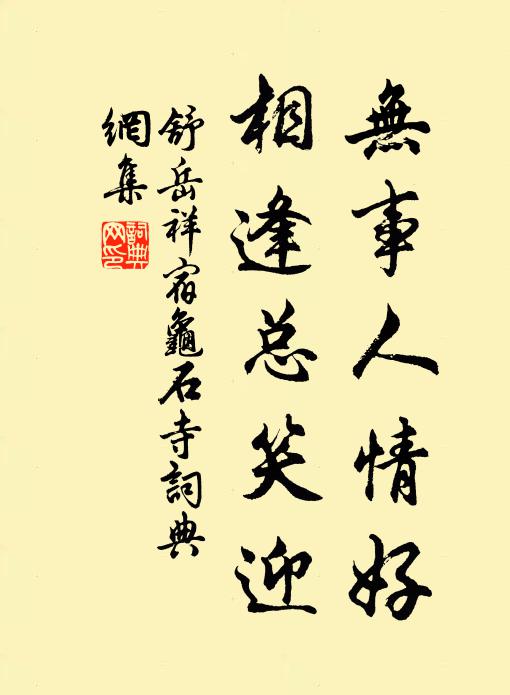 無事人情好
相逢总笑迎
舒岳祥宿龜石寺詞典
網集
詞典
网印